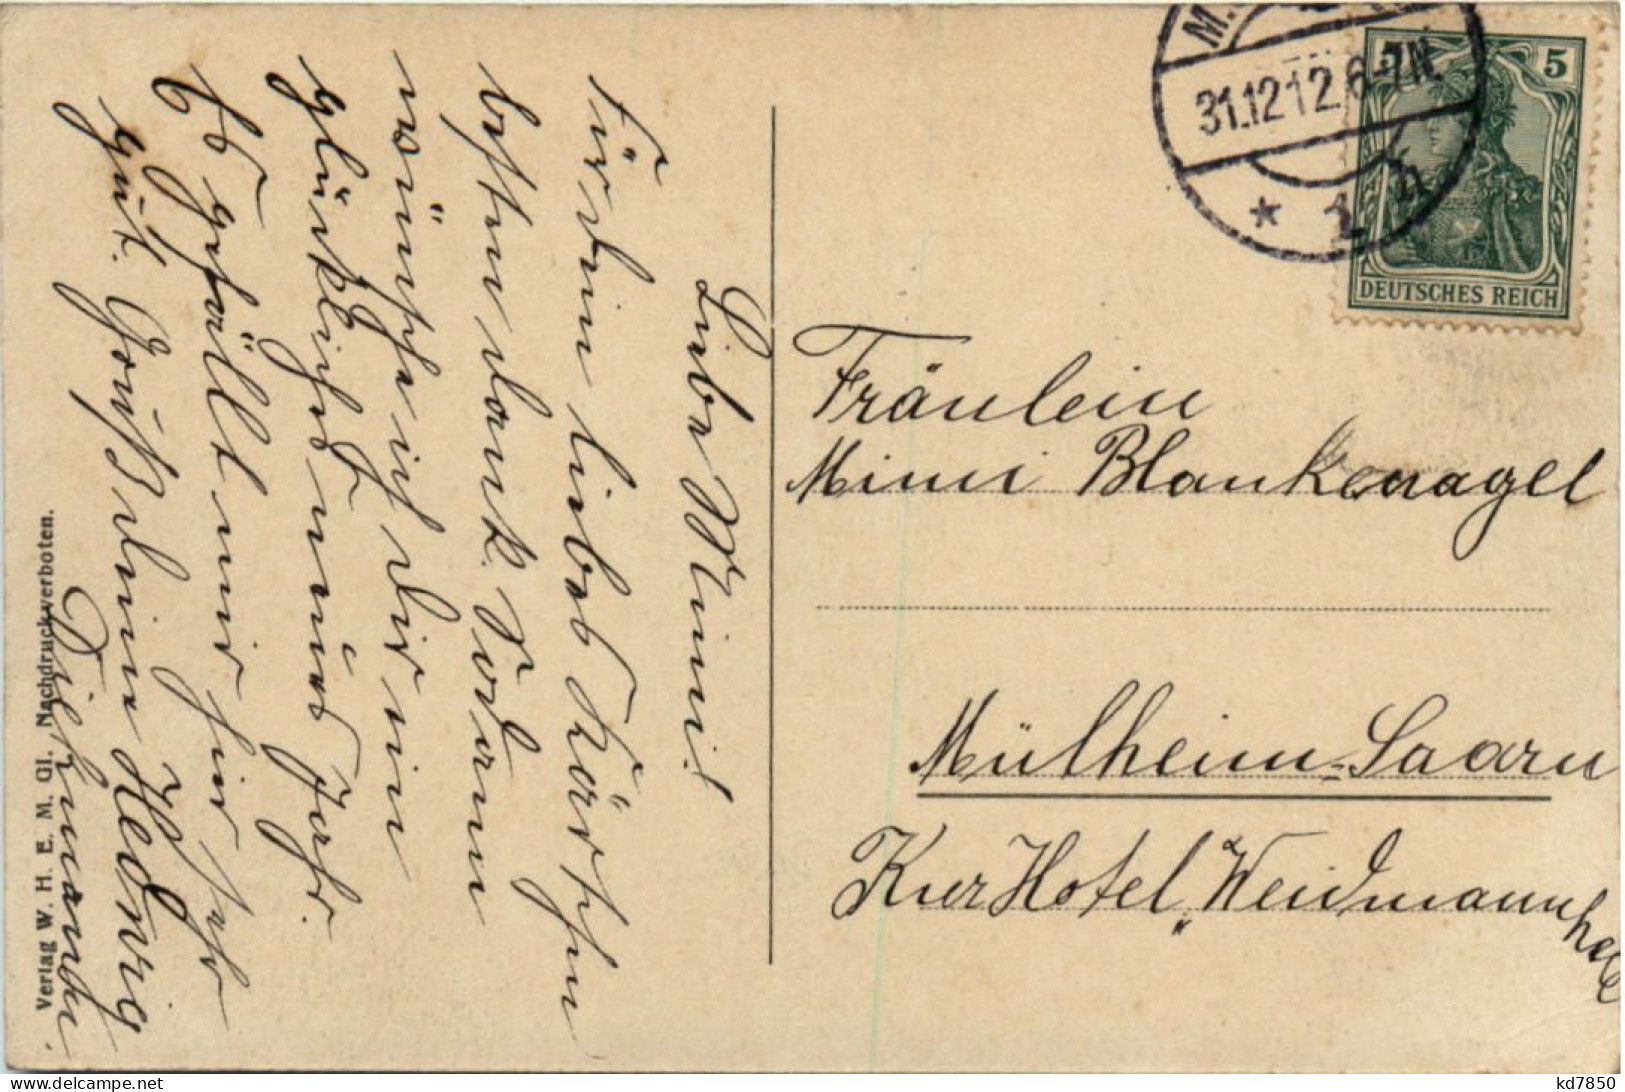 M.
31.12.12.6-7N.
* 1 h
5
DEUTSCHES REICH
Liebe Mimi!
Für dein liebes Kärtchen
besten dank. Sodann
wünsche ich dir ein
glückliches neues Jahr.
Es gefällt mir hier sehr
gut. Gruß deine Hedwig
Fräulein
Mimi Blankenagel
Mülheim-Saarn
KurHotel „Weidmannsheil
Verlag W. H. E. M. Gl. Nachdruck verboten.
kd7850